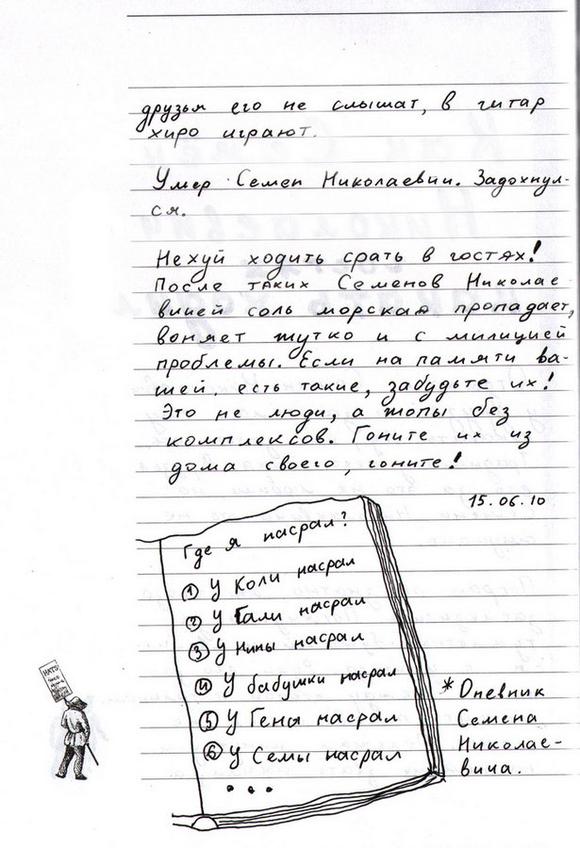 друзья его не слышат, в гитар
хиро играют.
Умер Семен Николаевич. Задохнул-
ся.
Нехуй ходить срать в гостях!
После таких Семенов Николае
вичей соль морская пропадает,
воняет жутко и с милицией
проблемы. Если на памяти ва-
шей есть такие, забудьте их!
Это не люди, а жопы без
комплексов. Гоните их из
дома своего, гоните!
15.06.10
Где я насрал?
1 У Коли насрал
2 У Гали насрал
3 У Нины насрал
4 У бабушки насрал
5 У Гены насрал
6 У Семы насрал
...
* Дневник
Семена
Николае-
вича.
НАТО